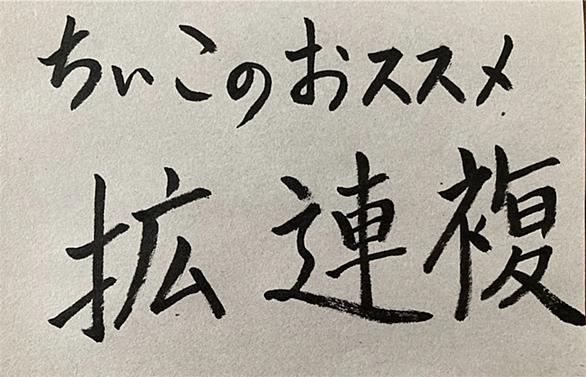 ちいこのおススメ
拡連複